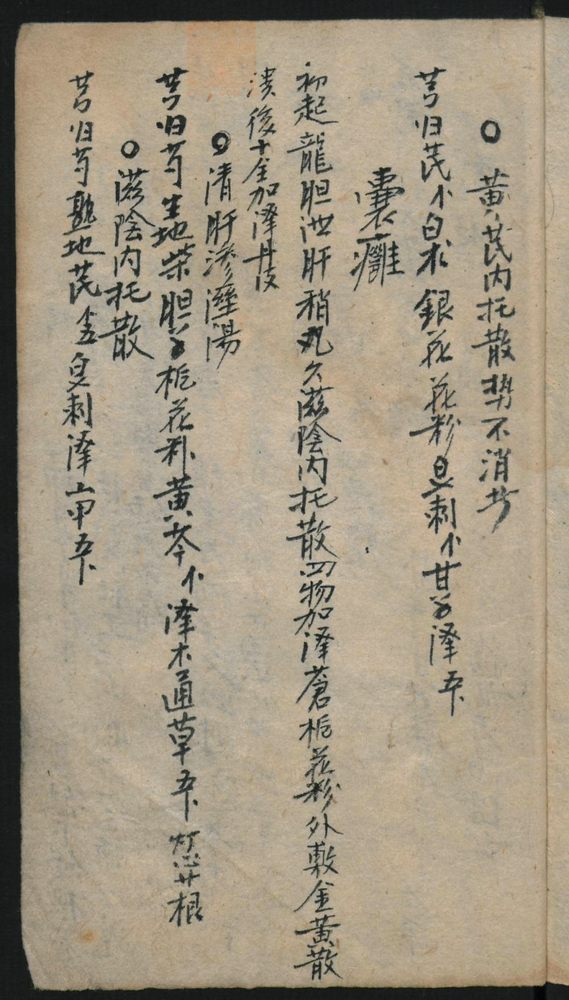 ○黄芪内托散势不消者
芎归芪小白术銀花花粉皂刺小甘泽
囊癰
初起龍胆泄肝稍久滋陰内托散四物加泽蒼栀花粉外敷金黄散
潰後十全加泽丹皮
○清肝渗溼湯
芎归芍生地柴胆栀花粉黄芩小泽木通草灯心廿根
○滋陰内托散
芎归芍熟地芪皂刺泽山甲